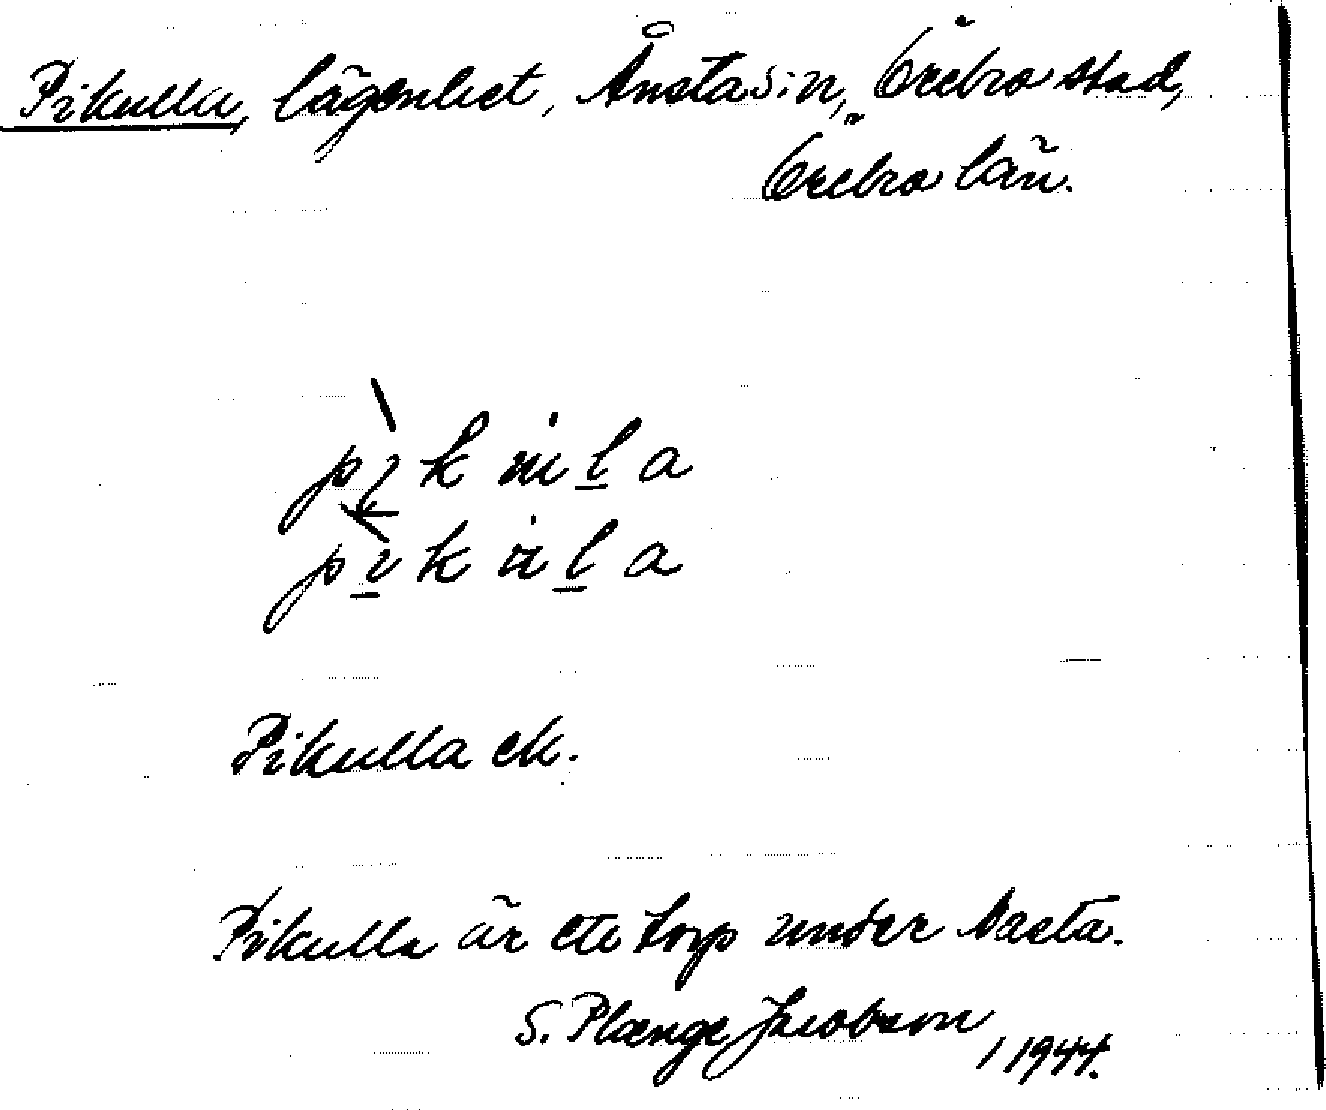 Pikulla, lägenhet, Ånsta sn, Örebro stad,
Örebro län.
Pikulla ek.
Pikulla är ett torp under Nasta.
S. Plænge Jacobson
/ 1944.